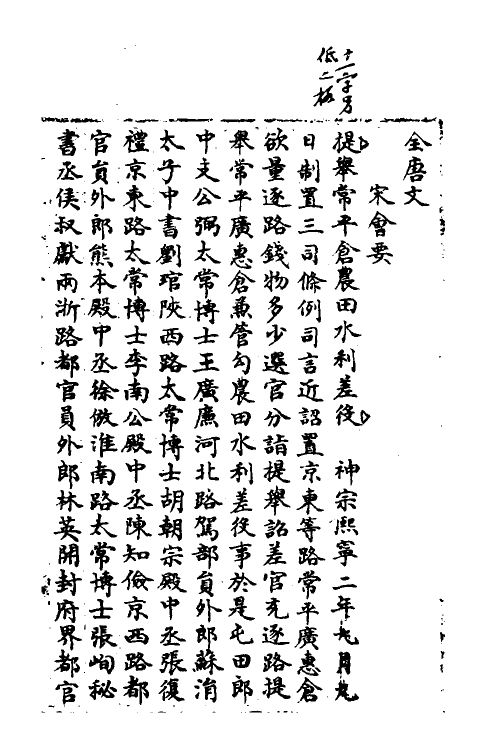 十一字另
低二板
全唐文
宋會要
提舉常平倉農田水利差役 神宗熙寧二年九月九
日制置三司條例司言近詔置京東等路常平廣惠倉
欲量逐路錢物多少選官分詣提舉詔差官充逐路提
舉常平廣惠倉兼管勾農田水利差役事於是屯田郎
中支公弼太常博士王廣廉河北路駕部員外郎蘇涓
太子中書劉琯陝西路太常博士胡朝宗殿中丞張復
禮京東路太常博士李南公殿中丞陳知儉京西路都
官員外郎熊本殿中丞徐倣淮南路太常博士張峋秘
書丞侯叔獻兩浙路都官員外郎林英開封府界都官